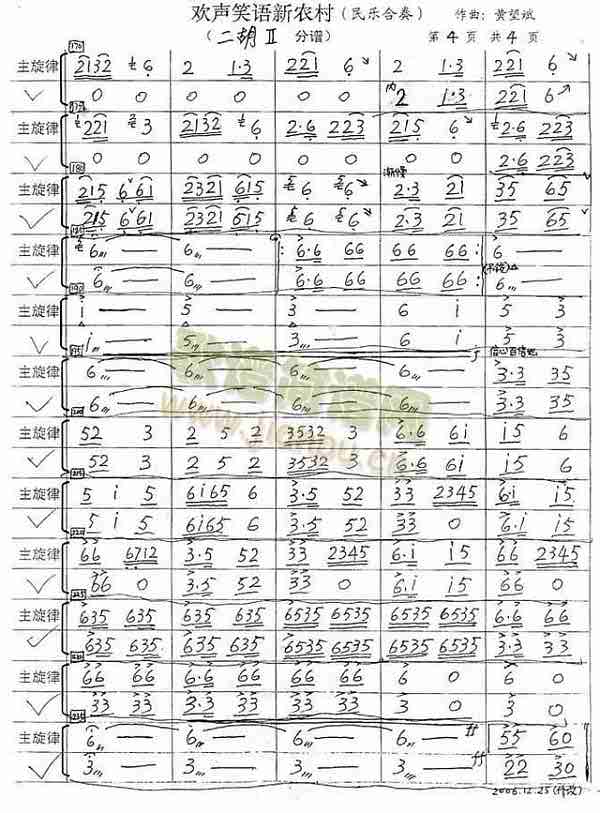 欢声笑语新农村(民乐合奏) 作曲:黄望斌
(二胡II 分谱) 第4页 共4页
170
主旋律 2132 6 2 1·3 221 6 2 1·3 221 6
0 0 0 0 0 0 2 1·3 221 6
主旋律 221 3 2132 6 2·6 223 215 6 2·6 223
0 0 0 0 0 0 0 0 2·6 223
180 渐慢
主旋律 215 661 2321 615 6 6 2·3 21 35 65
215 661 2321 615 6 6 2·3 21 35 65
主旋律 6 — 6 — 6·6 66 66 66 6 —
6 — 6 — 6·6 66 66 66 6 —
190
主旋律 i — 5 — 3 — 6 i 5 3
i — 5 — 3 — 6 i 5 3
主旋律 6 — 6 — 6 — 6 — 3·3 35
6 — 6 — 6 — 6 — 3·3 35
主旋律 52 3 2 5 2 3532 3 6·6 6i i5 6
52 3 2 5 2 3532 3 6·6 6i i5 6
主旋律 5 i 5 6i65 6 3·5 52 33 2345 6·i i5
5 i 5 6i65 6 3·5 52 33 0 6·i i5
主旋律 66 6712 3·5 52 33 2345 6·i i5 66 2345
66 0 3·5 52 33 0 6·i i5 66 0
主旋律 635 635 635 635 6535 6535 6535 6535 6·6 66
635 635 635 635 6535 6535 6535 6535 3·3 33
主旋律 66 66 6·6 66 66 66 6 0 6 0
33 33 3·3 33 33 33 3 0 3 0
主旋律 6 — 6 — 6 — 6 — ff 55 60
3 — 3 — 3 — 3 — ff 22 30
2006.12.25(修改)